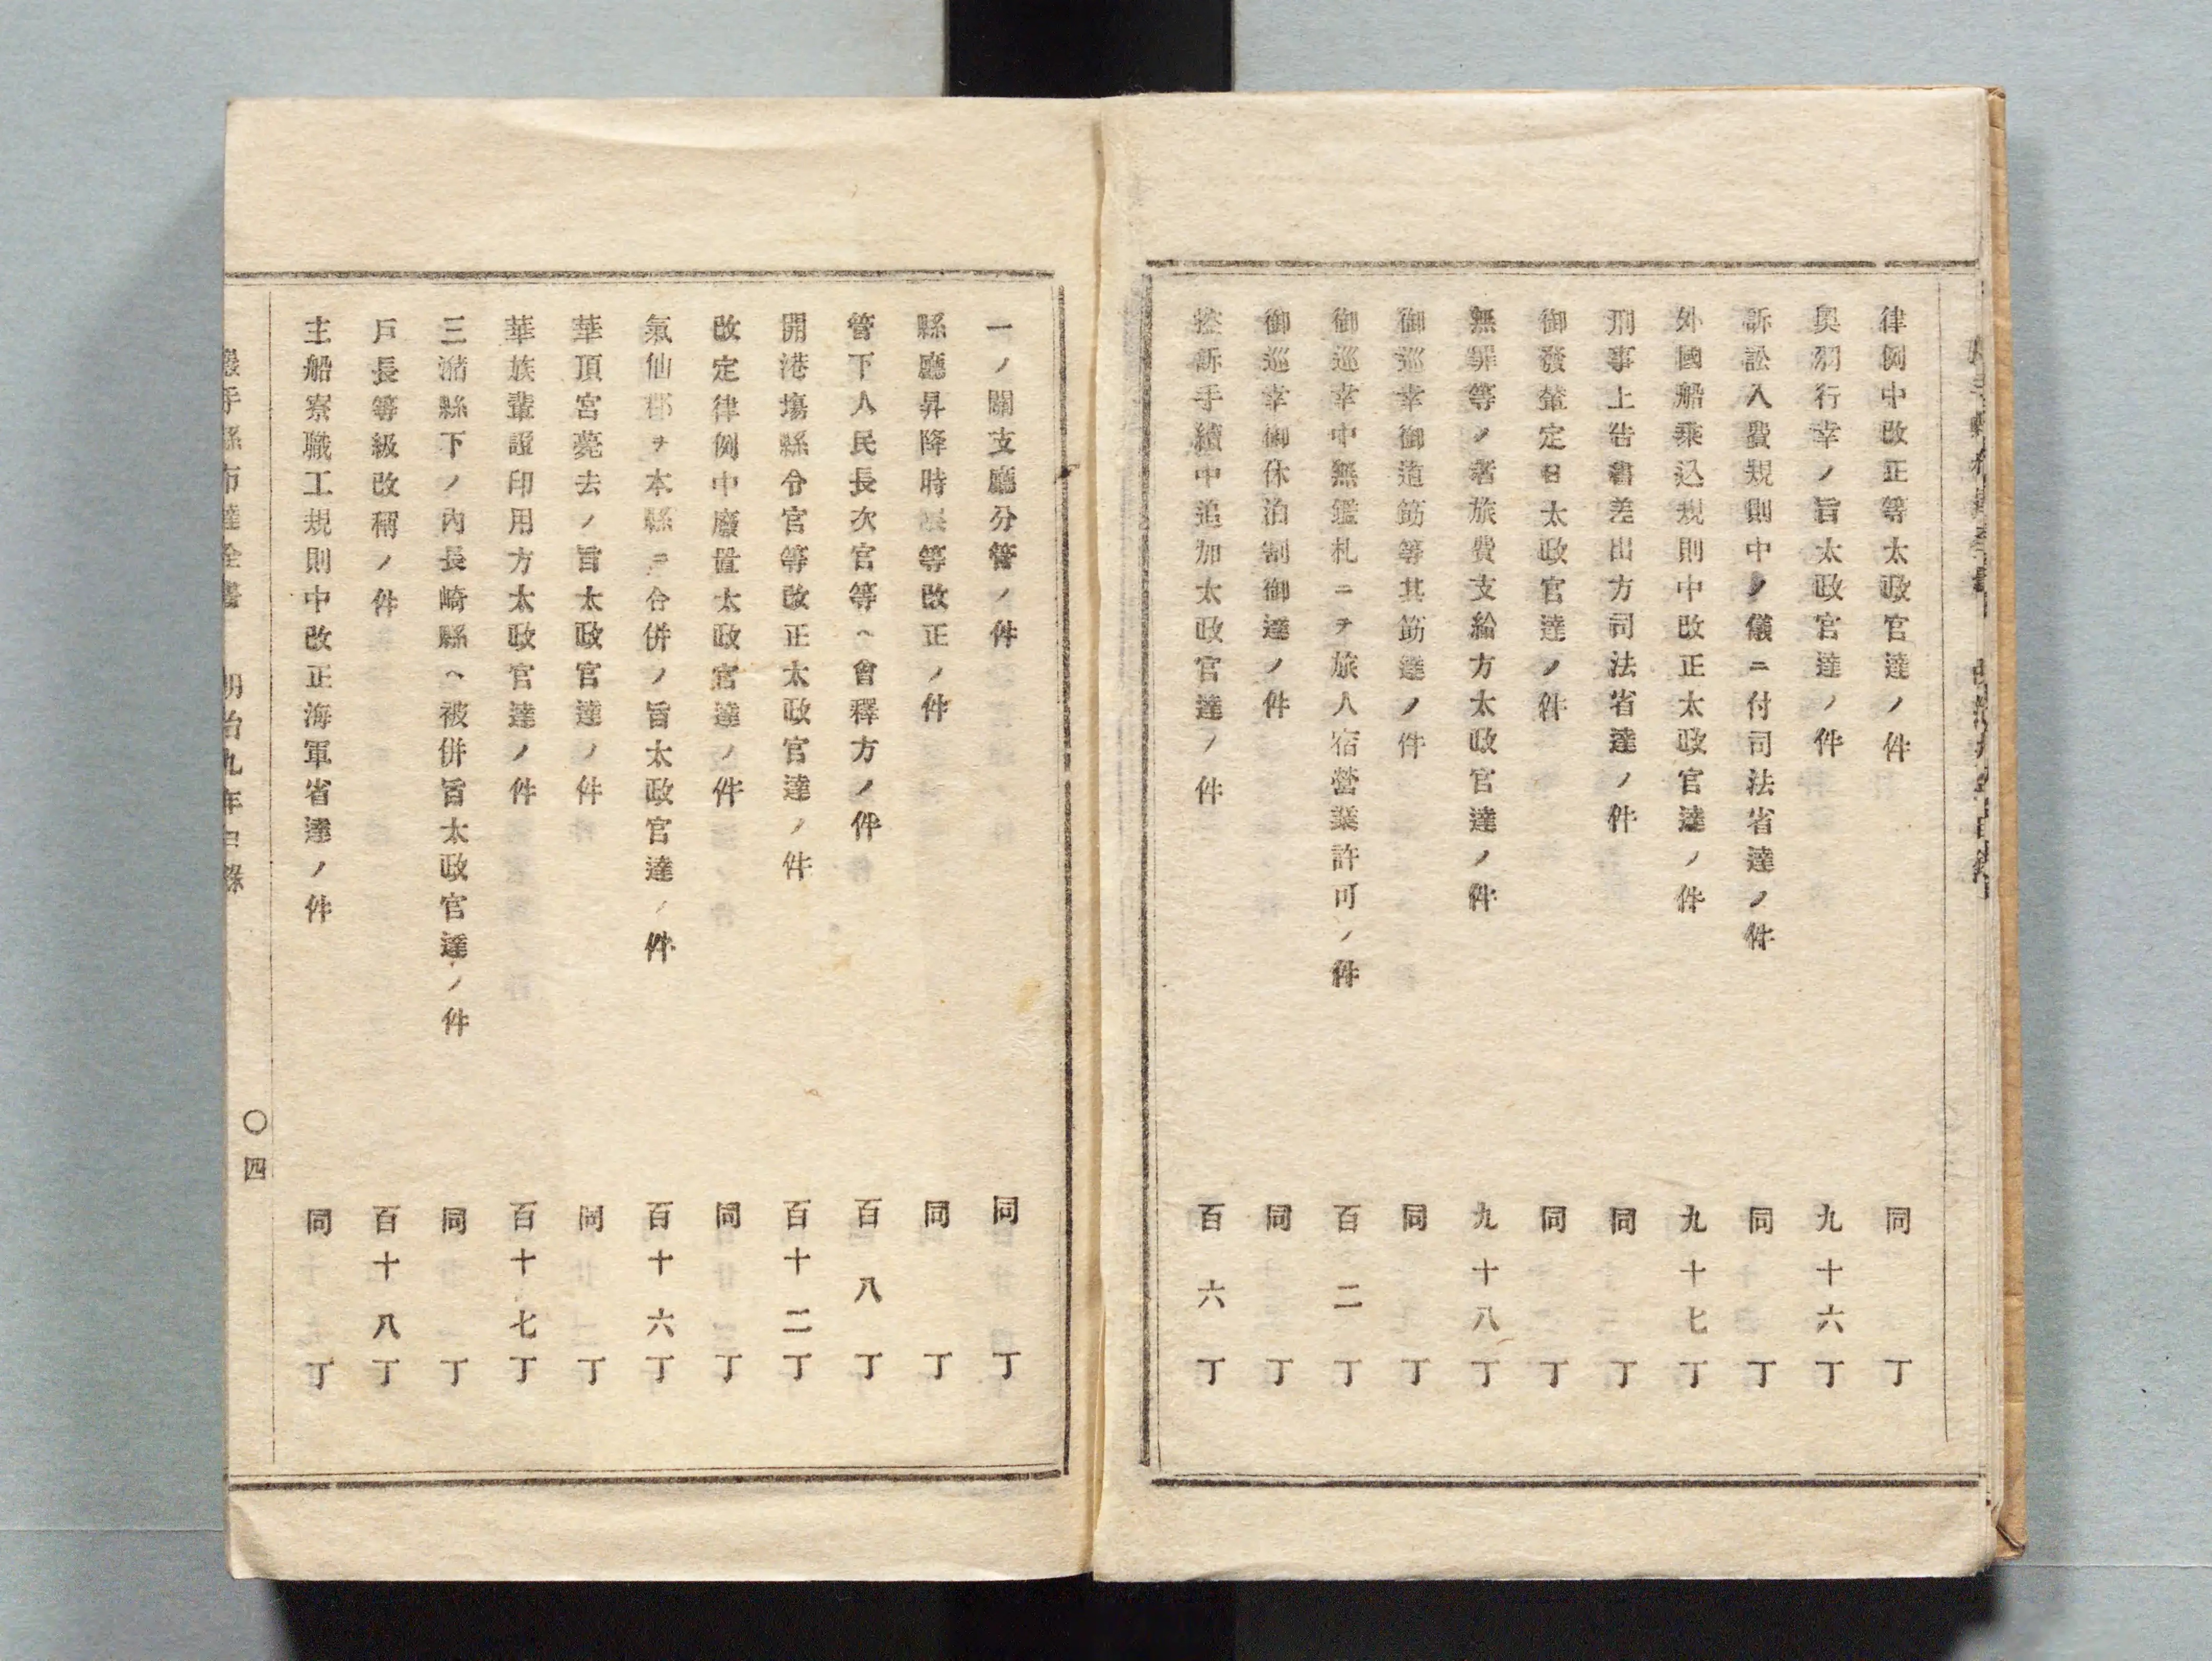 律例中改正等太政官達ノ件 同丁
奥羽行幸ノ旨太政官達ノ件 九十六丁
訴訟入費規則中ノ儀ニ付司法省達ノ件 同丁
外國船乘込規則中改正太政官達ノ件 九十七丁
刑事上告書差出方司法省達ノ件 同丁
御發輦定日太政官達ノ件 同丁
無罪等ノ者旅費支給方太政官達ノ件 九十八丁
御巡幸御道筋等其筋達ノ件 同丁
御巡幸中無鑑札ニテ旅人宿營業許可ノ件 百二丁
御巡幸御休泊割御達ノ件 同丁
控訴手續中追加太政官達ノ件 百六丁
一ノ關支廳分管ノ件 同丁
縣廳昇降時限等改正ノ件 同丁
管下人民長次官等ヘ會釋方ノ件 百八丁
開港場縣令官等改正太政官達ノ件 百十二丁
改定律例中廢置太政官達ノ件 同丁
氣仙郡ヲ本縣ニ合併ノ旨太政官達ノ件 百十六丁
華頂宮薨去ノ旨太政官達ノ件 同丁
華族輩證印用方太政官達ノ件 百十七丁
三潴縣下ノ內長崎縣ヘ被併旨太政官達ノ件 同丁
戶長等級改稱ノ件 百十八丁
主船寮職工規則中改正海軍省達ノ件 同丁
巖手縣布達全書 明治九年目錄 〇四